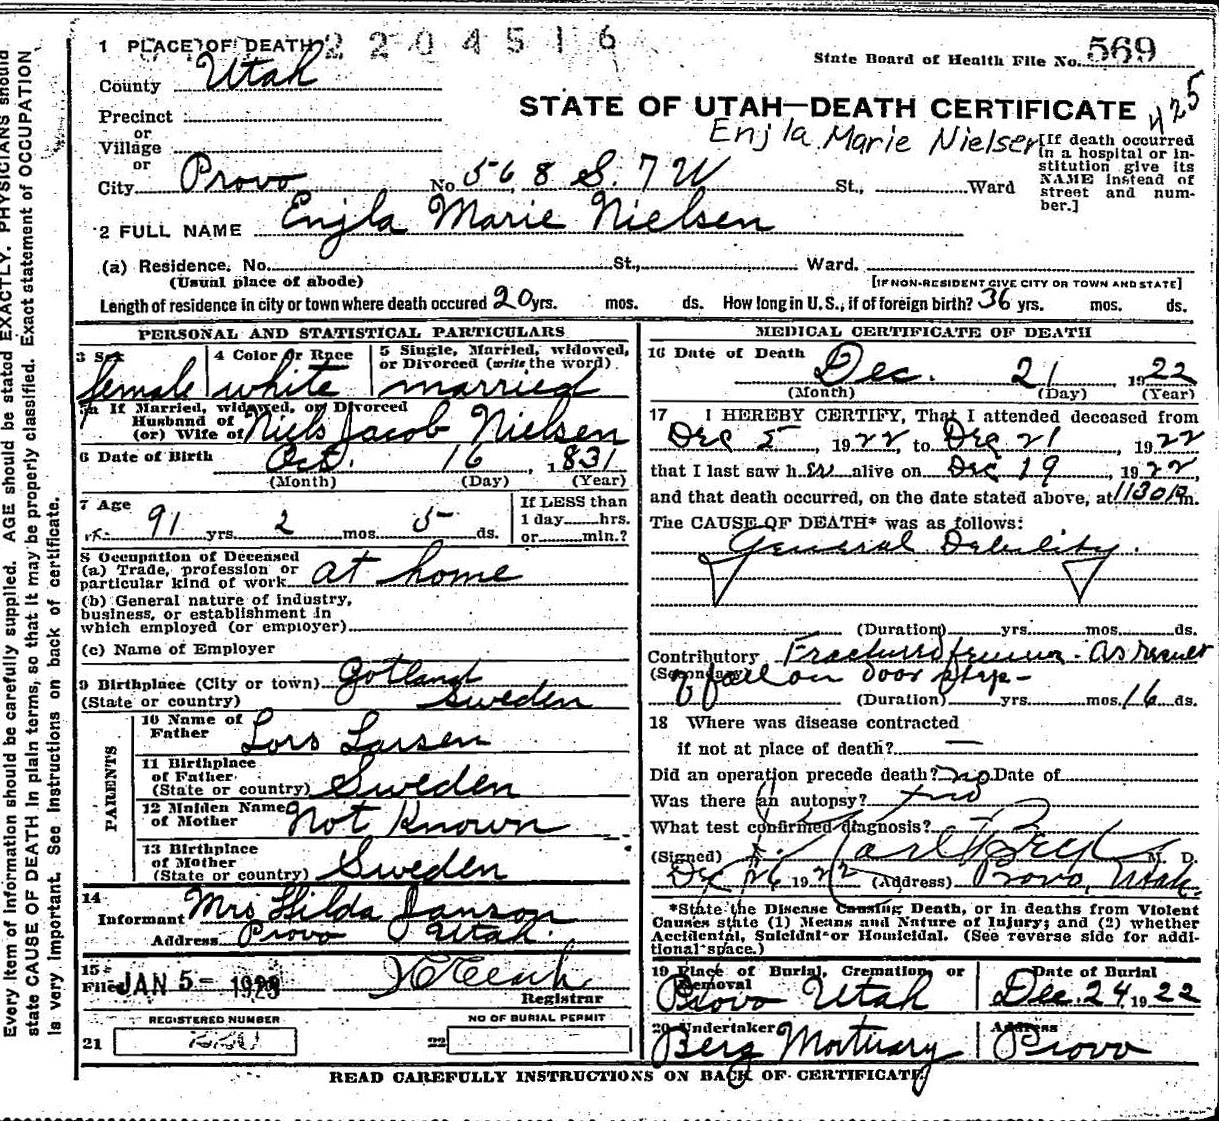 Every item of information should be carefully supplied. AGE should be stated EXACTLY. PHYSICIANS should
state CAUSE OF DEATH in plain terms, so that it may be properly classified. Exact statement of OCCUPATION
is very important. See instructions on back of certificate.
2204516
1 PLACE OF DEATH
State Board of Health File No. 569
County Utah
425
STATE OF UTAH—DEATH CERTIFICATE
Precinct
or
Village
or
Enjla Marie Nielsen
[If death occurred
in a hospital or in-
stitution give its
NAME instead of
street and num-
ber.]
City Provo No. 568 S. 7 W St., Ward
2 FULL NAME Enjla Marie Nielsen
(a) Residence. No. St., Ward.
(Usual place of abode) [IF NON-RESIDENT GIVE CITY OR TOWN AND STATE]
Length of residence in city or town where death occured 20 yrs. mos. ds. How long in U.S., if of foreign birth? 36 yrs. mos. ds.
PERSONAL AND STATISTICAL PARTICULARS
3 Sex female
4 Color or Race white
5 Single, Married, widowed,
or Divorced (write the word)
married
5a If Married, widowed, or Divorced
Husband of
(or) Wife of Niels Jacob Nielsen
6 Date of Birth Oct. 16, 1831
(Month) (Day) (Year)
7 Age 91 yrs. 2 mos. 5 ds.
If LESS than
1 day hrs.
or min.?
8 Occupation of Deceased
(a) Trade, profession or
particular kind of work at home
(b) General nature of industry,
business, or establishment in
which employed (or employer)
(c) Name of Employer
9 Birthplace (City or town) Gotland
(State or country) Sweden
PARENTS
10 Name of
Father Lars Larsen
11 Birthplace
of Father
(State or country) Sweden
12 Maiden Name
of Mother Not Known
13 Birthplace
of Mother
(State or country) Sweden
14
Informant Mrs Hilda Janson
Address Provo Utah.
15
Filed JAN 5- 1923
Registrar
REGISTERED NUMBER
21
NO OF BURIAL PERMIT
22
MEDICAL CERTIFICATE OF DEATH
16 Date of Death Dec. 21 1922
(Month) (Day) (Year)
17 I HEREBY CERTIFY, That I attended deceased from
Dec 5, 1922, to Dec 21, 1922
that I last saw her alive on Dec 19 1922,
and that death occurred, on the date stated above, at 1130 P m.
The CAUSE OF DEATH* was as follows:
General Debility.
(Duration) yrs. mos. ds.
Contributory Fractured femur - As result
(Secondary) of fall on door step -
(Duration) yrs. mos. 16 ds.
18 Where was disease contracted
if not at place of death? —
Did an operation precede death? no Date of
Was there an autopsy? no
What test confirmed diagnosis?
(Signed) M. D.
Dec 26 1922 (Address) Provo, Utah.
*State the Disease Causing Death, or in deaths from Violent
Causes state (1) Means and Nature of Injury; and (2) whether
Accidental, Suicidal or Homicidal. (See reverse side for addi-
tional space.)
19 Place of Burial, Cremation, or
Removal
Provo Utah
Date of Burial
Dec. 24 1922
20 Undertaker
Berg Mortuary
Address
Provo
READ CAREFULLY INSTRUCTIONS ON BACK OF CERTIFICATE